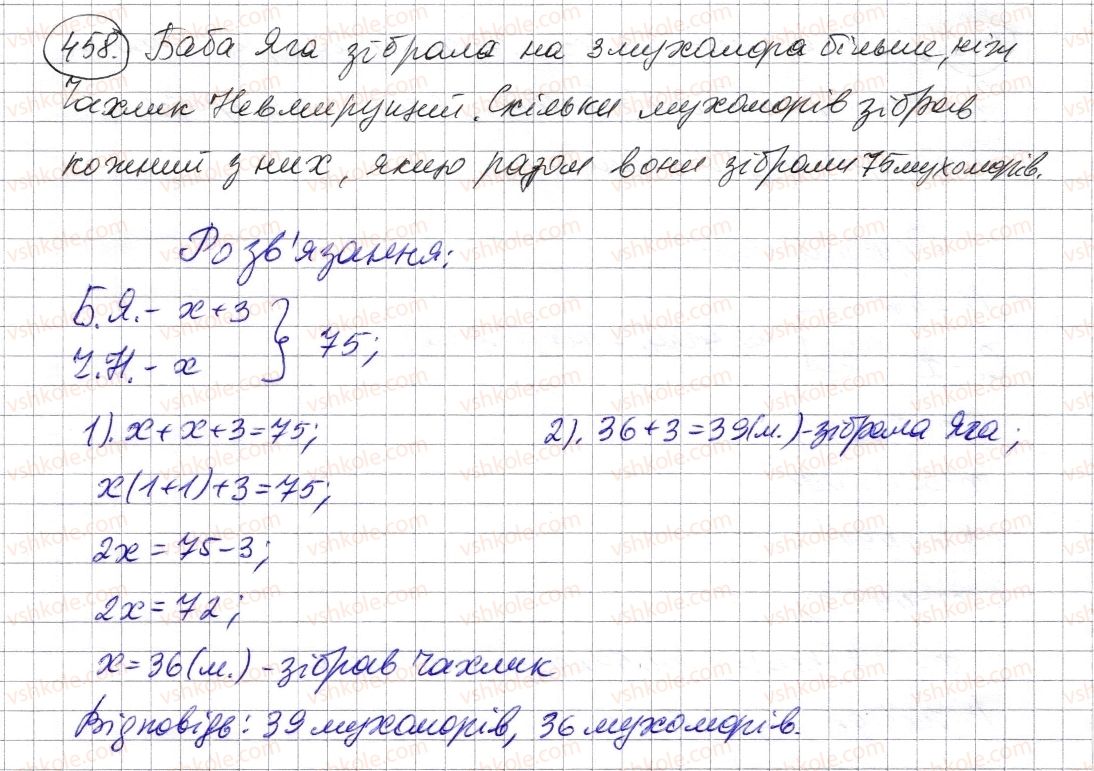 458. Баба Яга зібрала на 3 мухомора більше, ніж
Чахлик Невмирущий. Скільки мухоморів зібрав
кожний з них, якщо разом вони зібрали 75 мухоморів.
Розв'язання:
Б.Я. - x+3
Ч.Н. - x } 75;
1). x+x+3=75;
x(1+1)+3=75;
2x=75-3;
2x=72;
x=36(м.) - зібрав Чахлик
2). 36+3=39(м.) - зібрала Яга;
Відповідь: 39 мухоморів, 36 мухоморів.